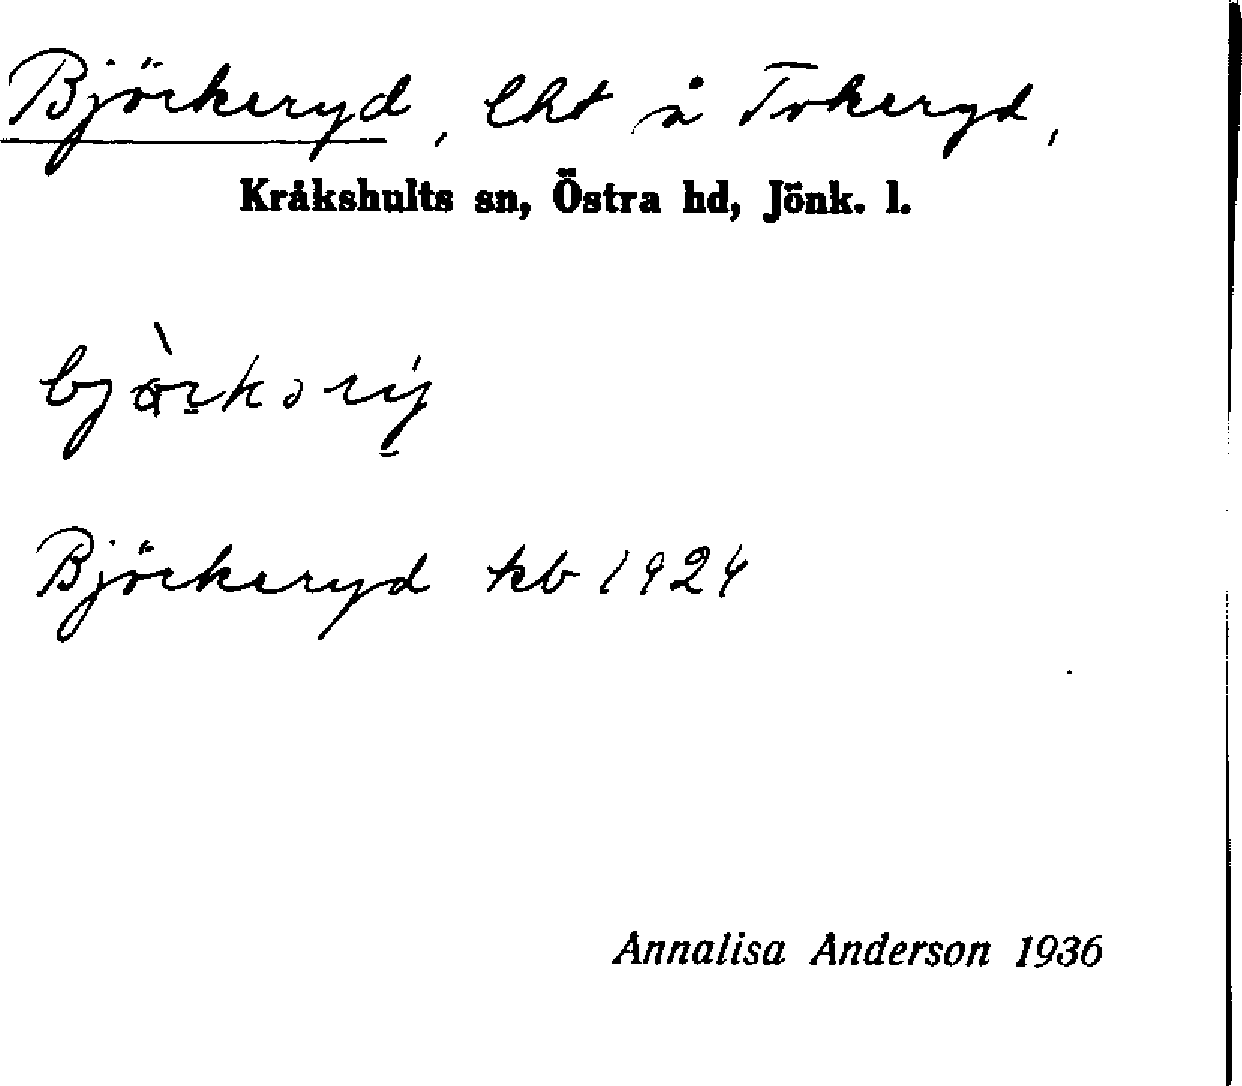 Björkeryd, lht å Tokeryd,
Kråkshults sn, Östra hd, Jönk. l.
Björkeryd kb 1924
Annalisa Anderson 1936